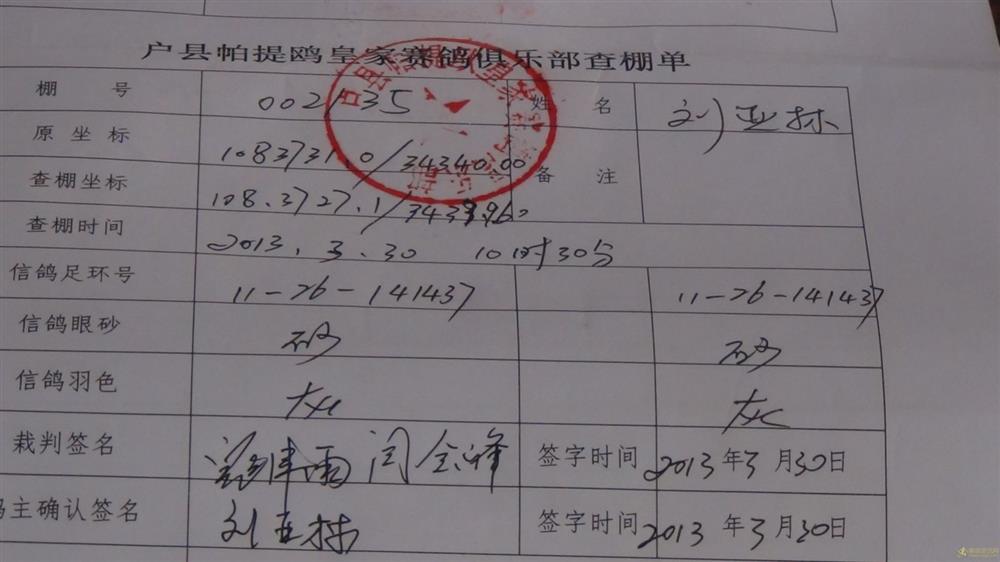 户县帕提鸥皇家赛鸽俱乐部查棚单
棚 号 002135 姓 名 刘亚栋
原坐标 1083731.0/34340.00 备 注
查棚坐标 108.3727.1/
查棚时间 2013.3.30 10时30分
信鸽足环号 11-26-141437 11-26-141437
信鸽眼砂 砂 砂
信鸽羽色 灰 灰
裁判签名 闫会峰 签字时间 2013年3月30日
鸽主确认签名 刘亚栋 签字时间 2013年3月30日